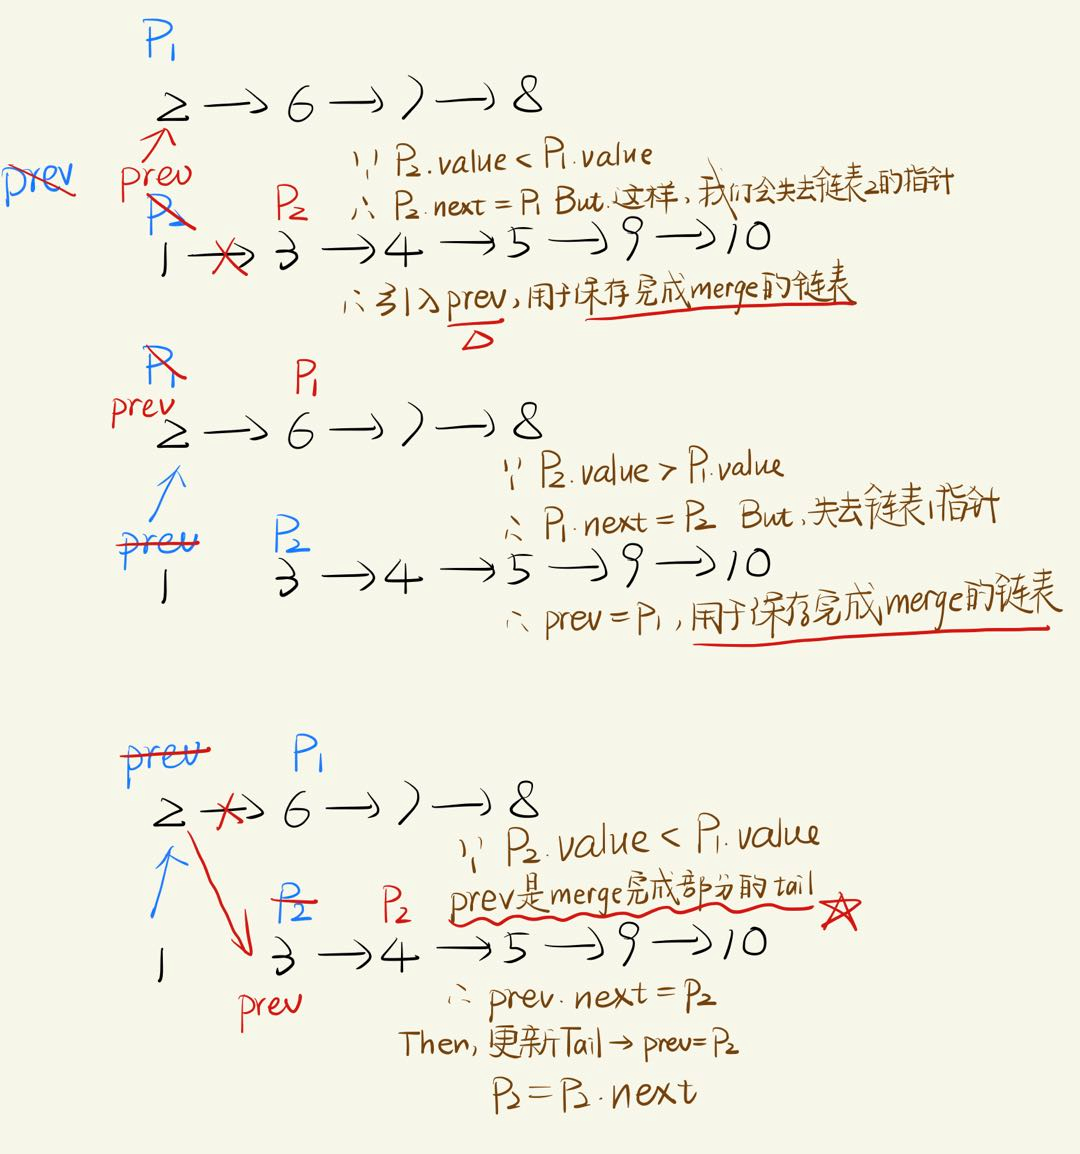 P₁
2 → 6 → 7 → 8
prev prev
∵ P₂.value < P₁.value
P₂ P₂ ∴ P₂.next = P₁ But.这样,我们会失去链表2的指针
1 → 3 → 4 → 5 → 9 → 10
∴ 引入prev,用于保存完成merge的链表
P₁ P₁
prev
2 → 6 → 7 → 8
∵ P₂.value > P₁.value
∴ P₁.next = P₂ But,失去链表1指针
prev P₂
1 3 → 4 → 5 → 9 → 10
∴ prev = P₁,用于保存完成merge的链表
prev P₁
2 → 6 → 7 → 8
∵ P₂.value < P₁.value
P₂ P₂ prev是merge完成部分的tail
1 3 → 4 → 5 → 9 → 10
prev ∴ prev.next = P₂
Then,更新Tail → prev=P₂
P₂ = P₂.next